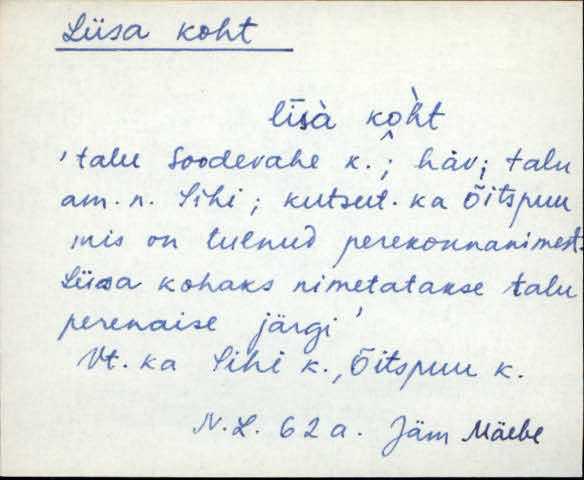 Liisa koht
līsà kò̭ht
'talu Soodevahe k.; häv; talu
am. n. Sihi; kutsut. ka Õitspuu
mis on tulnud perekonnanimest.
Liisa kohaks nimetatakse talu
perenaise järgi'
Vt. ka Sihi k., Õitspuu k.
N.L. 62 a. Jäm Mäebe